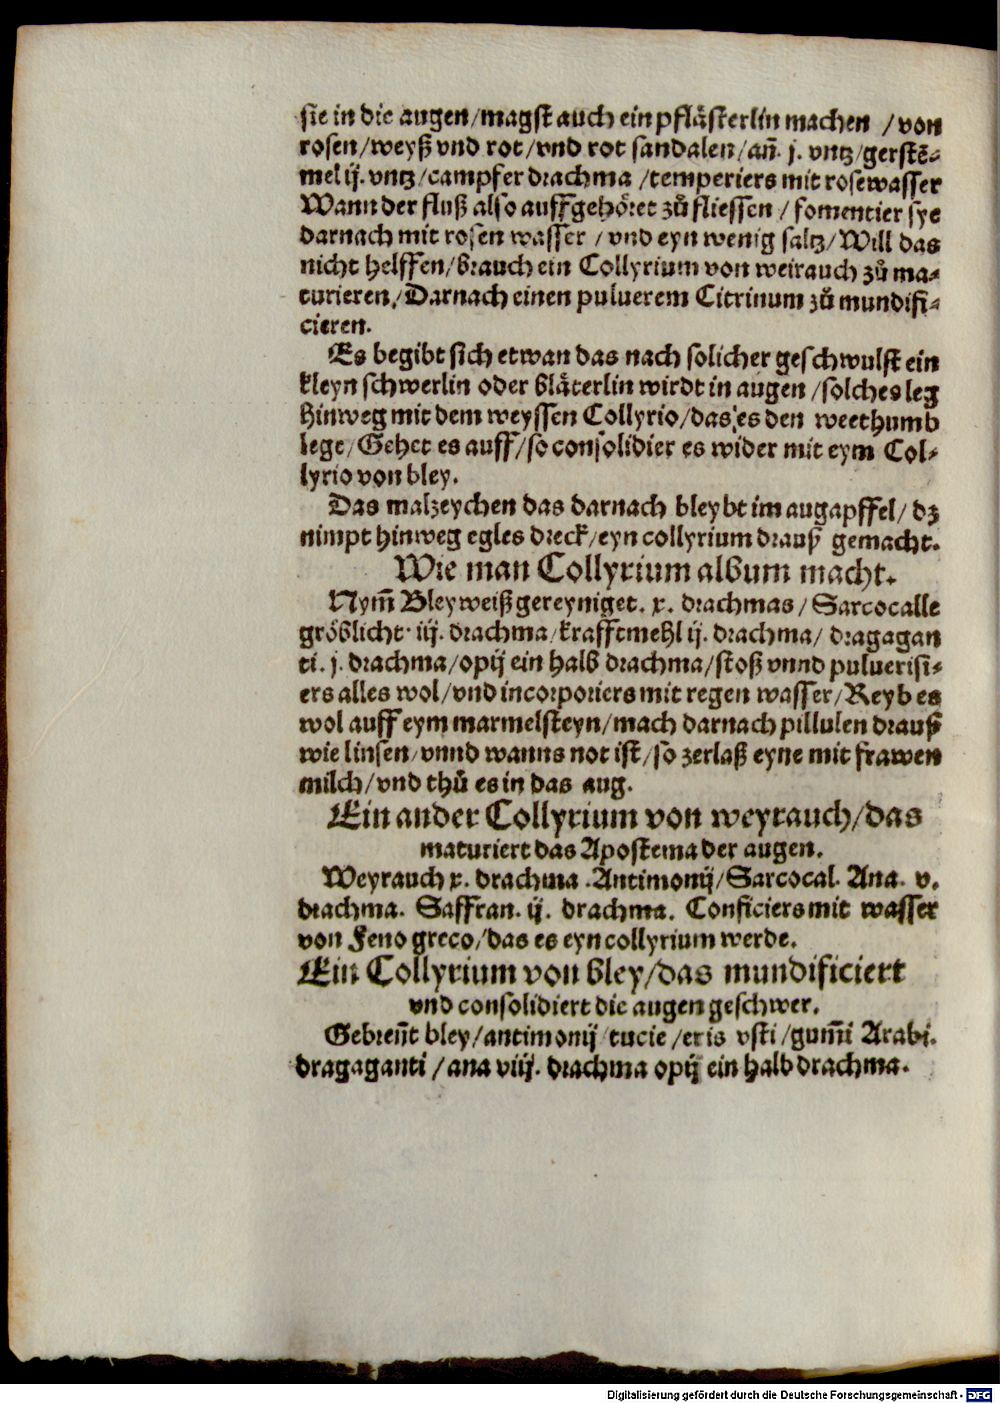 sie in die augen/magst auch ein pflästerlin machen /von
rosen/weyß vnd rot/vnd rot sandalen/añ. j. vntz/gerstē-
mel ij. vntz/campfer drachma /temperiers mit rosewasser
Wann der fluß also auffgehöret zů fliessen / fomentier sye
darnach mit rosen wasser /vnd eyn wenig saltz/Will das
nicht helffen/brauch ein Collyrium von weirauch zů ma-
turieren/Darnach einen puluerem Citrinum zů mundifi-
cieren.
Es begibt sich etwan das nach solicher geschwulst ein
kleyn schwerlin oder bläterlin wirdt in augen /solches leg
hinweg mit dem weyssen Collyrio/das es den weethumb
lege/Gehet es auff/so consolidier es wider mit eym Col-
lyrio von bley.
Das malzeychen das darnach bleybt im augapffel/ dz
nimpt hinweg egles dreck/eyn collyrium drauß gemacht.
Wie man Collyrium album macht.
Nym̃ Bleyweiß gereyniget. x. drachmas/ Sarcocalle
gröblicht· iij. drachma/krafftmehl ij. drachma/ dragagan
ti. j. drachma/opij ein halb drachma/stoß vnnd puluerisi-
ers alles wol/vnd incorporiers mit regen wasser/Reyb es
wol auff eym marmelsteyn/mach darnach pillulen drauß
wie linsen/vnnd wanns not ist/so zerlaß eyne mit frawen
milch/vnd thů es in das aug.
Ein ander Collyrium von weyrauch/das
maturiert das Apostema der augen.
Weyrauch x. drachma .Antimonij/Sarcocal. Ana. v.
drachma. Saffran. ij. drachma. Conficiers mit wasser
von Feno greco/das es eyn collyrium werde.
Ein Collyrium von bley/das mundificiert
vnd consolidiert die augen geschwer.
Gebreñt bley/antimonij/tucie/eris vsti/gum̃i Arabi.
dragaganti/ana viij. drachma opij ein halb drachma.
Digitalisierung gefördert durch die Deutsche Forschungsgemeinschaft - DFG